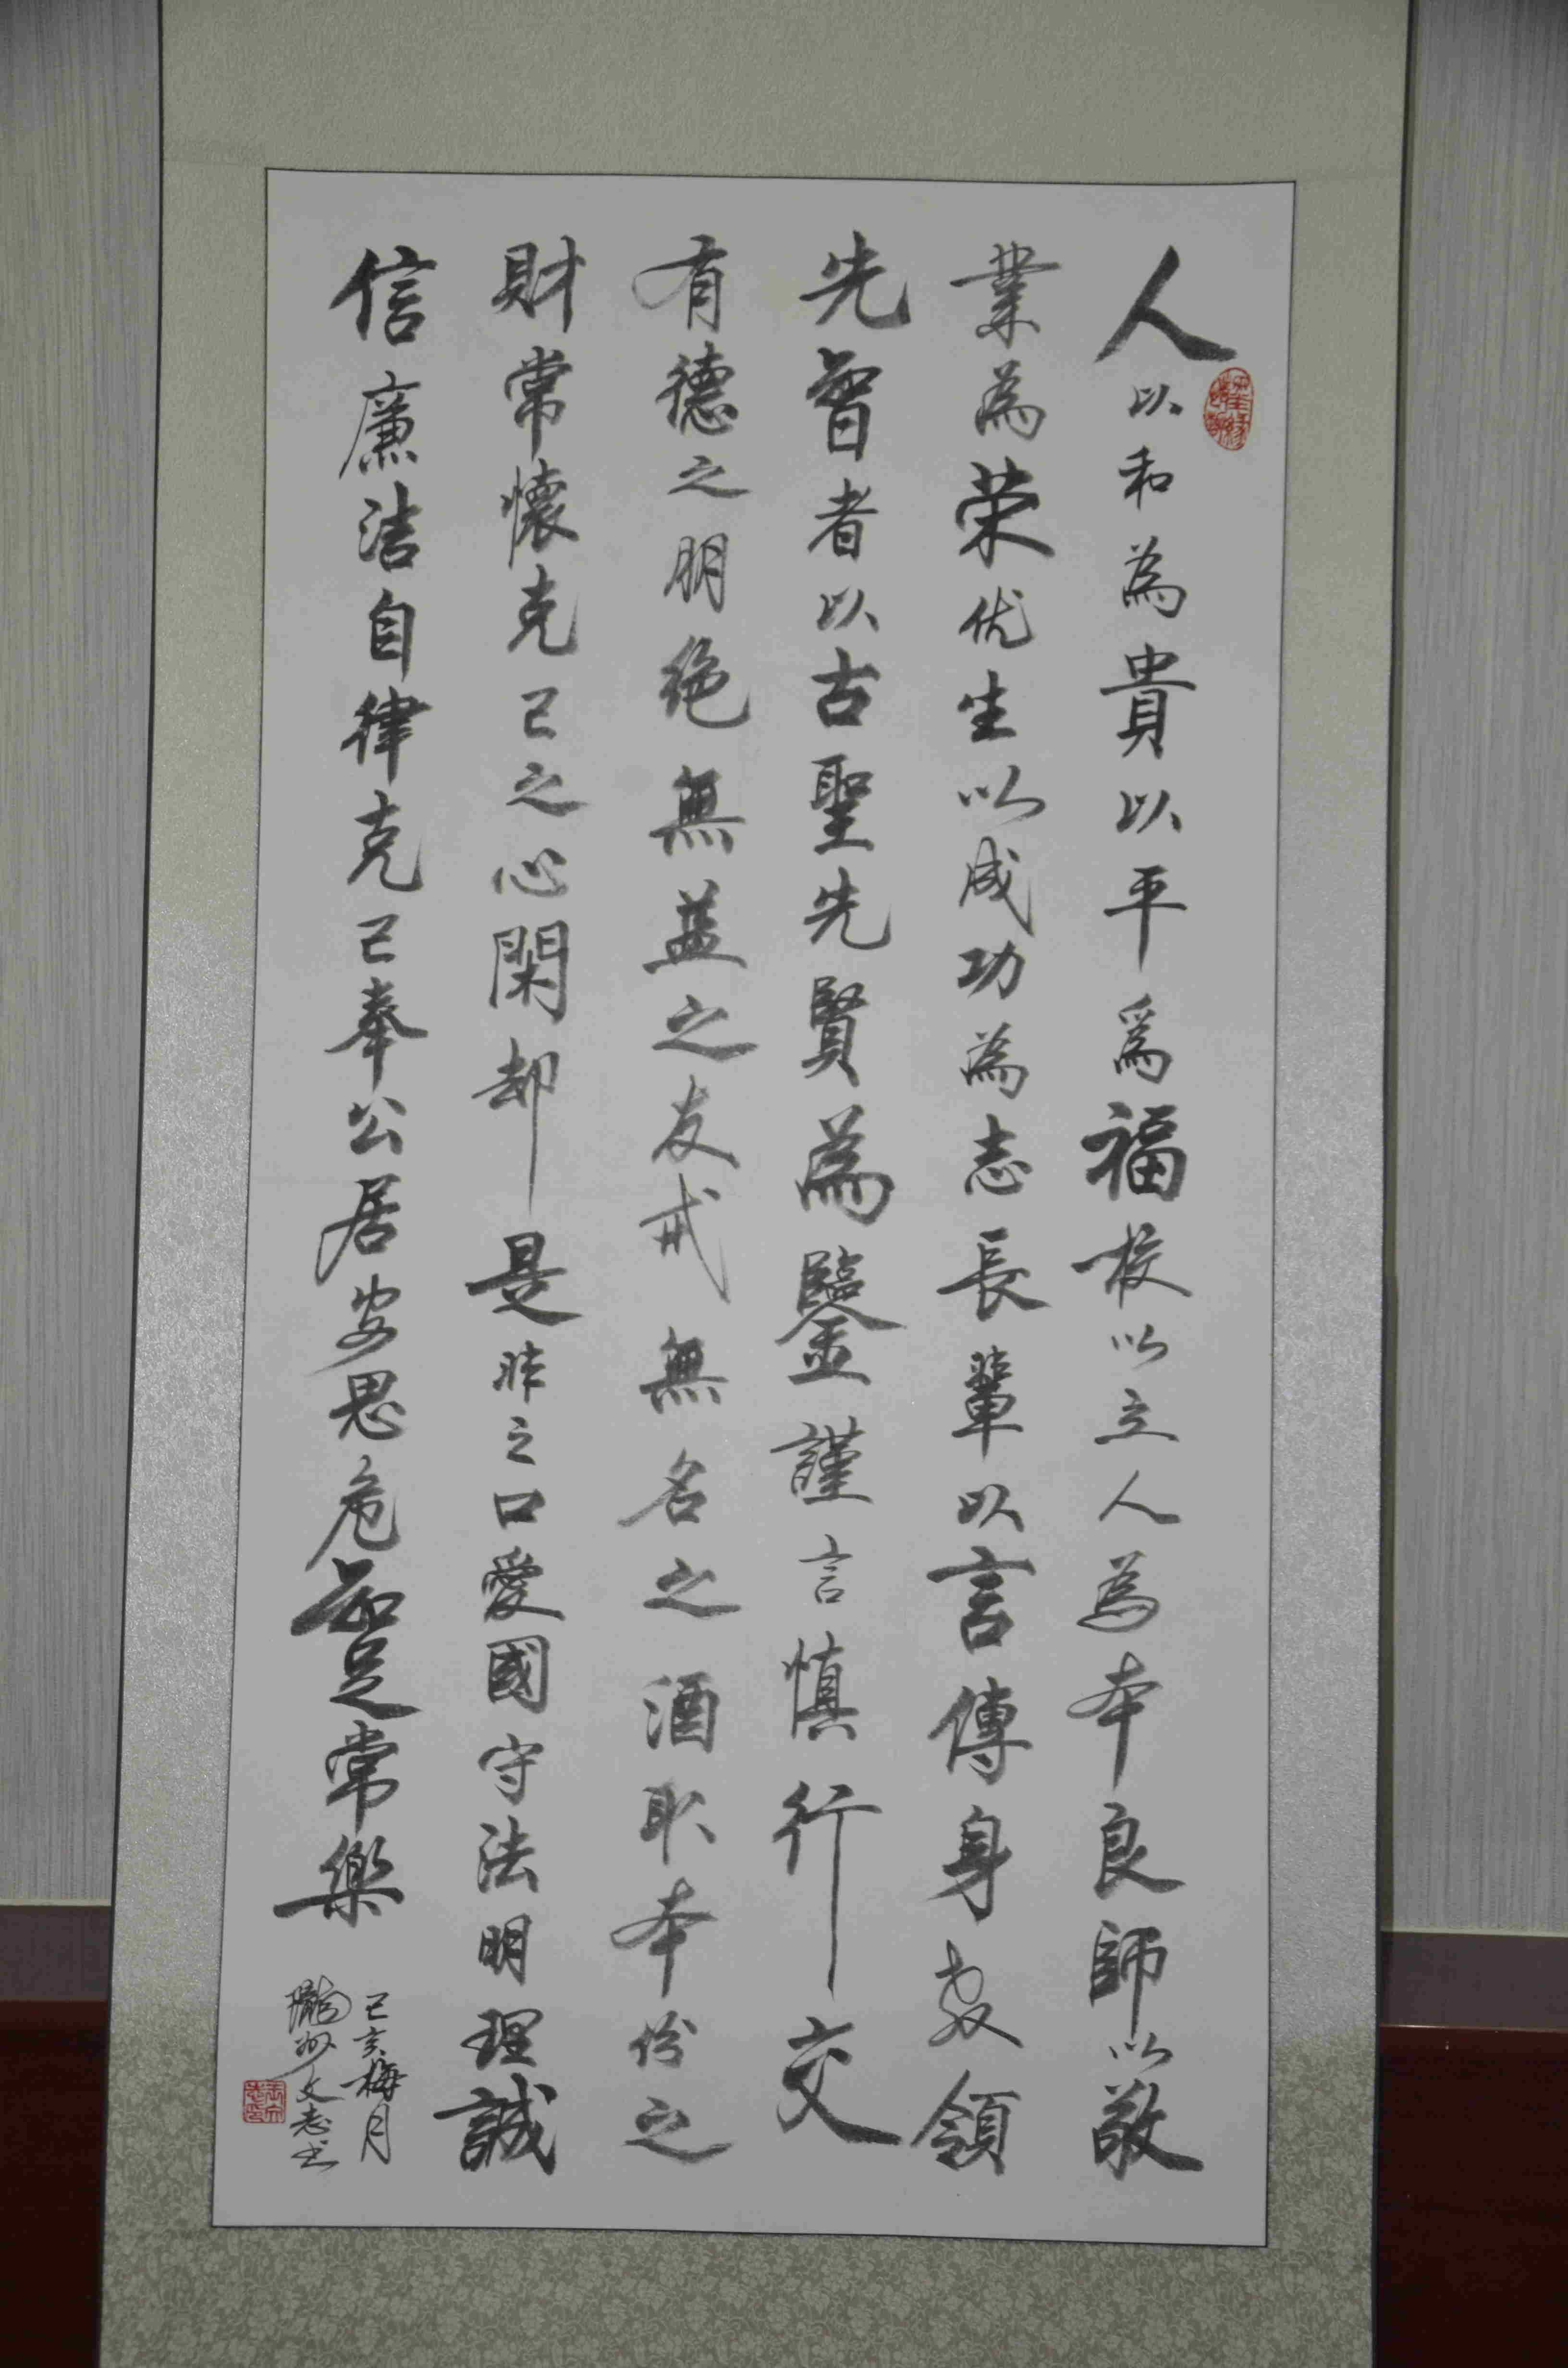 人以和為貴以平爲福校以立人為本良師以敬
業為荣优生以成功為志長輩以言傳身教領
先智者以古聖先賢為鑒謹言慎行交
有德之朋绝無益之友戒無名之酒取本份之
財常懷克己之心閑却是非之口愛國守法明理誠
信廉洁自律克己奉公居安思危知足常樂
己亥梅月
隴州文志书